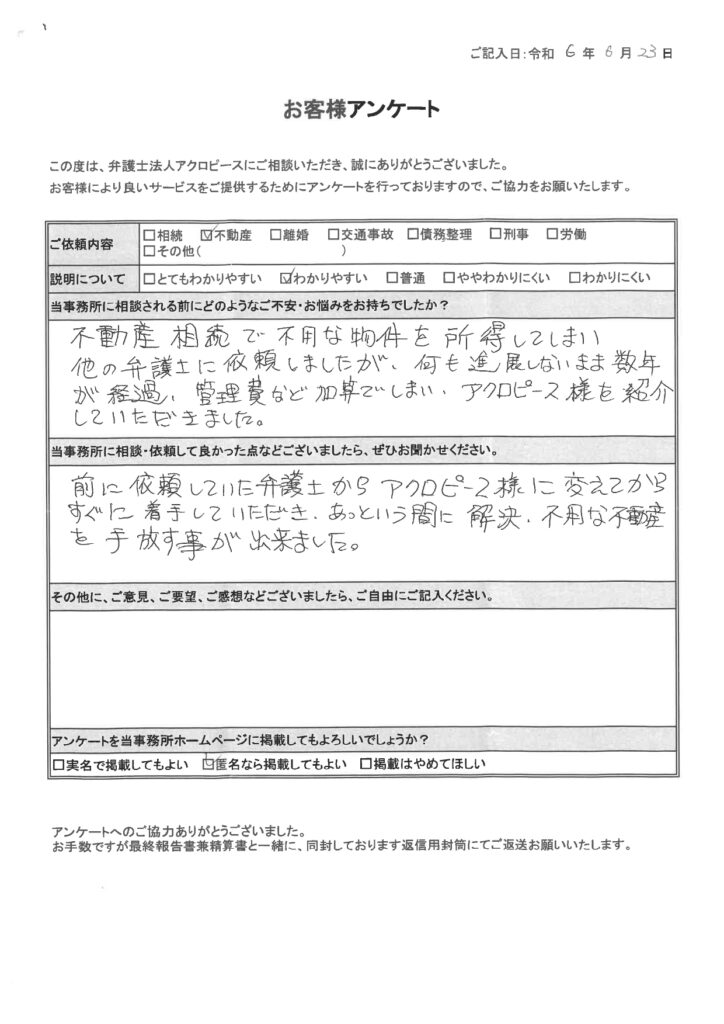 ご記入日:令和 6 年 6 月 23 日
お客様アンケート
この度は、弁護士法人アクロピースにご相談いただき、誠にありがとうございました。
お客様により良いサービスをご提供するためにアンケートを行っておりますので、ご協力をお願いたします。
ご依頼内容 □相続 ☑不動産 □離婚 □交通事故 □債務整理 □刑事 □労働
□その他( )
説明について □とてもわかりやすい ☑わかりやすい □普通 □ややわかりにくい □わかりにくい
当事務所に相談される前にどのようなご不安・お悩みをお持ちでしたか？
不動産相続で不用な物件を所得してしまい
他の弁護士に依頼しましたが、何も進展しないまま数年
が経過、管理費など加算でしまい、アクロピース様を紹介
していただきました。
当事務所に相談・依頼して良かった点などございましたら、ぜひお聞かせください。
前に依頼していた弁護士からアクロピース様に変えてから
すぐに着手していただき、あっという間に解決、不用な不動産
を手放す事が出来ました。
その他に、ご意見、ご要望、ご感想などございましたら、ご自由にご記入ください。
アンケートを当事務所ホームページに掲載してもよろしいでしょうか？
□実名で掲載してもよい ☑匿名なら掲載してもよい □掲載はやめてほしい
アンケートへのご協力ありがとうございました。
お手数ですが最終報告書兼精算書と一緒に、同封しております返信用封筒にてご返送お願いいたします。